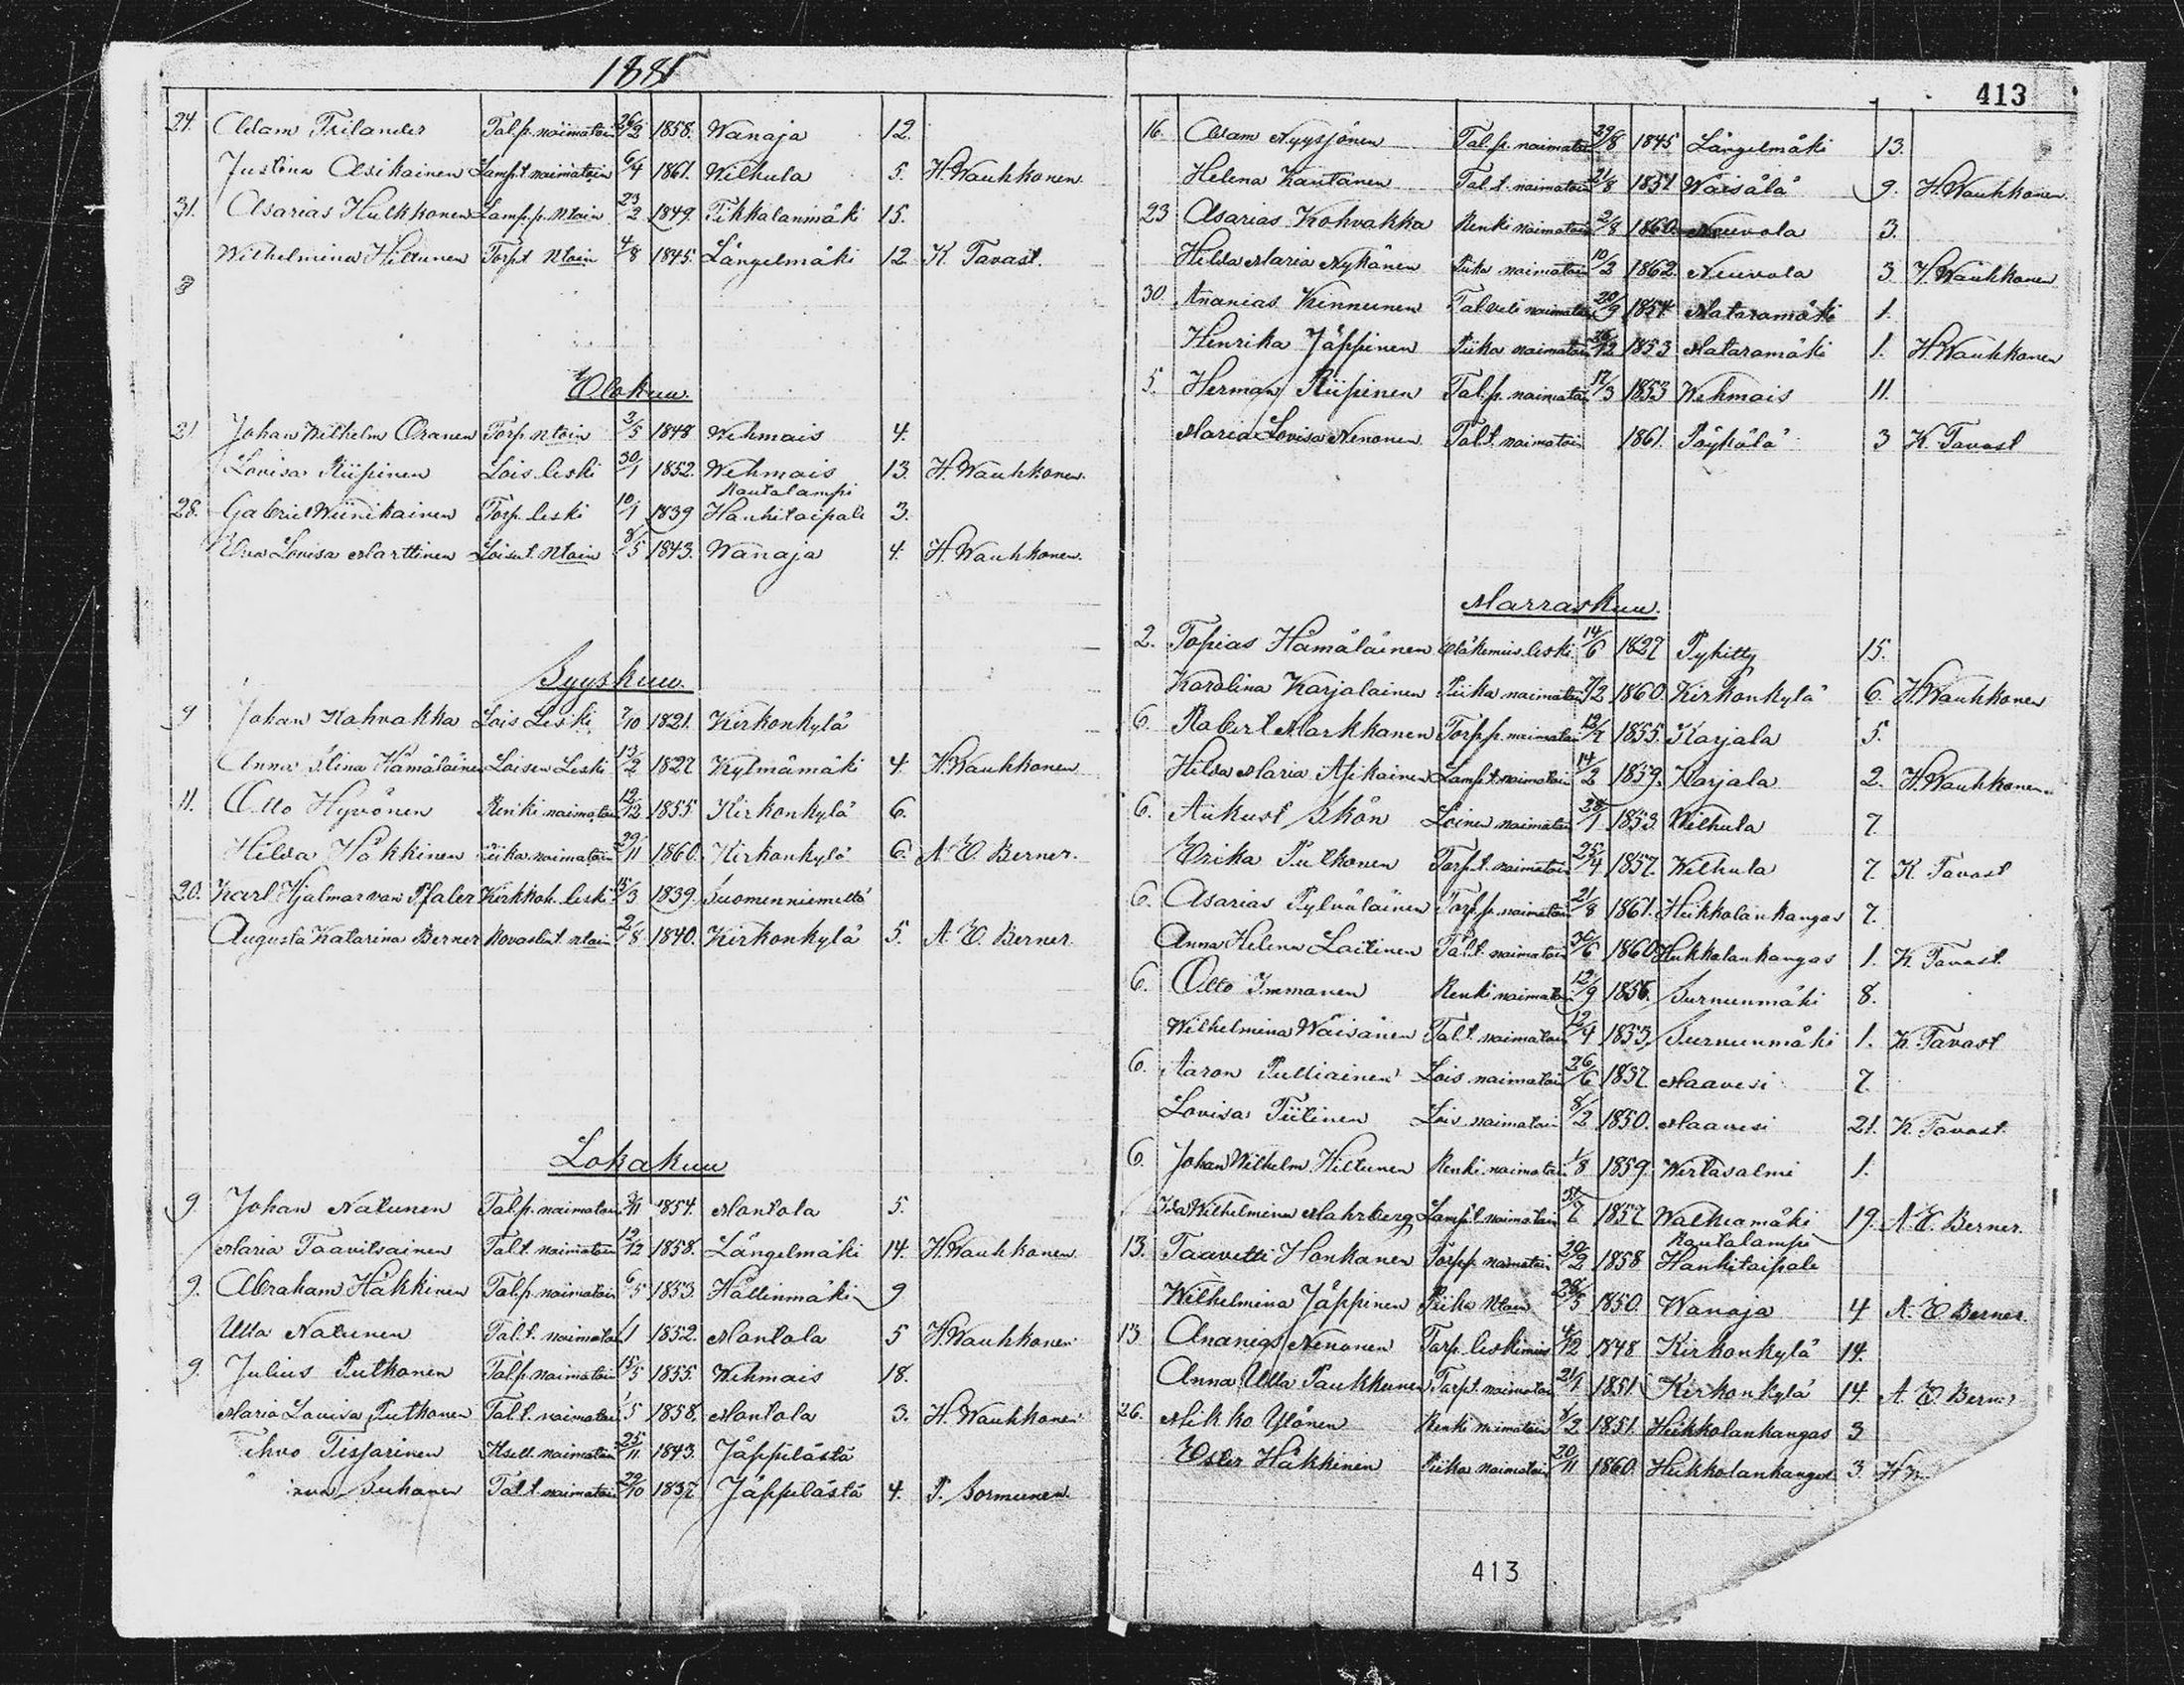 1881
24. Adam Frilander Tal.p. naimatoin 26/2 1858. Wanaja 12.
Justina Asikainen Lamp.t. naimatoin 6/4 1861. Wilhula 5. H. Wauhkonen.
31. Asarias Hulkkonen Lamp.p. Ntoin 23/2 1849. Tikkalanmäki 15.
Wilhelmina Hiltunen Torp.t Ntoin 4/8 1845. Längelmäki 12 K. Tavast.
Elokuu.
21 Johan Wilhelm Oranen Torp. Ntoin 3/5 1848 Wehmais 4.
Lovisa Riipinen Lois. leski 30/1 1852. Wehmais 13. H. Wauhkonen.
Rautalampi
28. Gabriel Wiinikainen Torp. leski 10/1 1839 Hankitaipale 3.
Eva Lovisa Marttinen Loisen t. Ntoin 8/5 1843. Wanaja 4. H. Wauhkonen.
Syyskuu.
4 Johan Kohvakka Lois Leski 7/10 1821. Kirkonkylä
Anna Elina Hämäläinen Loisen Leski 13/2 1827 Kylmämäki 4. H. Wauhkonen
11. Otto Hyvönen Renki naimatoin 12/12 1855 Kirkonkylä 6.
Hilda Häkkinen Piika naimatoin 29/11 1860. Kirkonkylä 6. A. E. Berner.
20. Karl Hjalmar von Pfaler Kirkkoh. leski 15/3 1839. Suomenniemeltä
Augusta Katarina Berner Rovastin t. ntoin 2/8 1840. Kirkonkylä 5. A. E. Berner
Lokakuu
9. Johan Natunen Tal.p. naimatoin 1854. Montola 5.
Maria Taavitsainen Tal.t. naimatoin 12/12 1858. Längelmäki 14. H. Wauhkonen.
9. Abraham Häkkinen Tal.p. naimatoin 6/5 1853. Hällinmäki 9
Ulla Natunen Tal.t. naimatoin 1852. Montola 5 H. Wauhkonen
9. Julius Putkonen Tal.p. naimatoin 15/5 1855. Wehmais 18.
Maria Lovisa Putkonen Tal.t. naimatoin 1858. Montola 3. H. Wauhkonen
Tihvo Tissarinen Itsell. naimatoin 25/11 1843. Jäppilästä
Suhonen Tal.t. naimatoin 29/10 1837 Jäppilästä 4. P. Sormunen.
413
16. Adam Nyyssönen Tal.p. naimatoin 29/8 1845 Längelmäki 13.
Helena Kautanen Tal.t. naimatoin 21/8 1857 Wäisälä 9. H. Wauhkonen.
23 Asarias Kohvakka Renki naimatoin 2/8 1860. Neuvola 3.
Hilda Maria Nykänen Piika naimatoin 10/2 1862. Neuvola 3 H. Wauhkonen
30. Ananias Kinnunen Tal.veli naimatoin 20/9 1854 Mataramäki 1.
Henrika Jäppinen Piika naimatoin 26/12 1853 Mataramäki 1. H. Wauhkonen
5. Herman Riipinen Tal.p. naimatoin 17/3 1853 Wehmais 11.
Maria Lovisa Nenonen Tal.t. naimatoin 1861. Pöyhölä 3 K. Tavast
Marraskuu.
2. Topias Hämäläinen Eläkemies leski 14/6 1827 Pyhitty 15.
Karolina Karjalainen Piika naimatoin 1860. Kirkonkylä 6. H. Wauhkonen
6. Robert Markkanen Torp.p. naimatoin 12/7 1855. Karjala 5.
Hilda Maria Asikainen Lamp.t. naimatoin 14/2 1859. Karjala 2. H. Wauhkonen
6. Aukust Skön Loinen naimatoin 28/1 1853 Wilhula 7.
Erika Putkonen Torp.t. naimatoin 25/4 1857. Wilhula 7. K. Tavast
6. Asarias Pylväläinen Torp.p. naimatoin 21/8 1861. Heikkolankangas 7.
Anna Helena Laitinen Tal.t. naimatoin 30/6 1860 Heikkolankangas 1. K. Tavast.
6. Otto Immanen Renki naimatoin 12/9 1856. Surnunmäki 8.
Wilhelmina Wäisänen Tal.t. naimatoin 12/4 1853 Surnunmäki 1. K. Tavast
6. Aaron Pulliainen Lois naimatoin 26/6 1857. Maavesi 7.
Lovisa Tiitinen Lois naimatoin 8/2 1850. Maavesi 21. K. Tavast.
6. Johan Wilhelm Hiltunen Renki naimatoin 1/8 1859. Wirtasalmi 1.
Ida Wilhelmina Mahrberg Lamp.t. naimatoin 31/7 1857 Walkeamäki 19. A. E. Berner.
Rautalampi
13. Taavetti Honkanen Torp.p. naimatoin 20/2 1858 Hankitaipale
Wilhelmina Jäppinen Piika Ntoin 28/5 1850. Wanaja 4 A. E. Berner.
13 Ananias Nenonen Torp. leskimies 4/12 1848 Kirkonkylä 14.
Anna Ulla Paukkunen Torp.t. naimatoin 21/1 1851. Kirkonkylä 14 A. E. Berner
26. Mikko Ylönen Renki naimatoin 8/2 1851. Heikkolankangas 3
Ester Häkkinen Piika naimatoin 20/11 1860. Heikkolankangas 3. H.
413